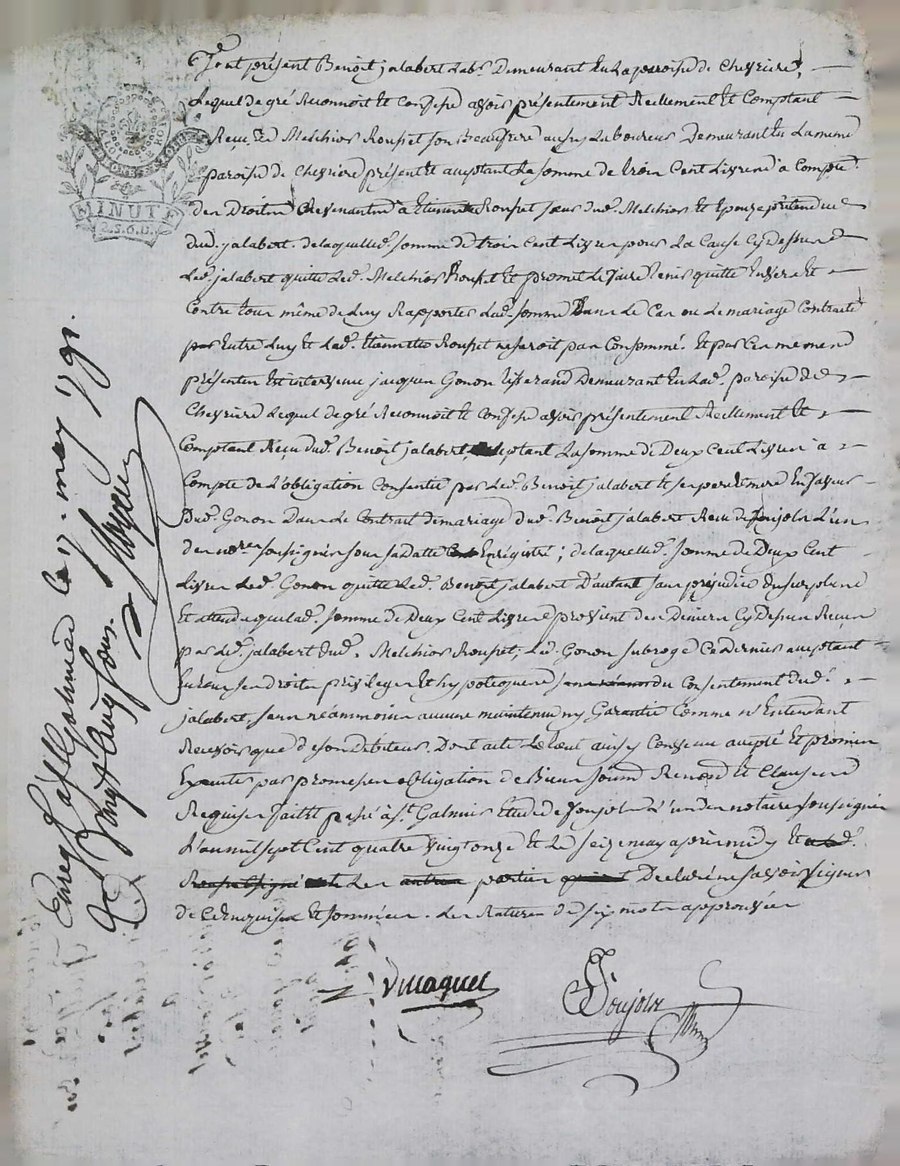 MINUTE
2.S.6.D.
fut présent Benoit jalabert lab.r Demeurant En La paroisse de Chevriere,
Lequel de gré Reconnoit et Confesse avoir présentement Reellement Et Comptant
Reçu de Melchior Rousset son Beaufrere aussy Laboureur Demeurant En La meme
paroisse de Chevriere présent Et acceptant La somme de trois Cent Livres a Compte
des Droits Revenants a Etiennette Rousset soeur dud. Melchior Et Epouze prétendue
dud. jalabert. de laquelle d. somme de trois Cent Livres pour La Cause Cy dessus
Led. jalabert quitte Led. Melchior Rousset Et promet Le faire tenir quitte Envers Et
Contre tous même de Luy Rapporter Lad. somme Dans Le Cas ou Le mariage Contracté
Entre Luy Et Lad. Etiennette Rousset ne seroit pas Consommé. Et par Ces memes
présentes Est intervenu jacques Gonon tisserand Demeurant En Lad. paroisse de
Chevriere Lequel de gré Reconnoit et Confesse avoir présentement Reellement Et
Comptant Reçu dud. Benoit jalabert, acceptant La somme de Deux Cent Livres a
Compte de L'obligation Consentie par Led. Benoit jalabert et ses pere et mere En faveur
Dud. Gonon Dans Le Contrat de mariage dud. Benoit jalabert Reçu de Joujoln L'un
des no.res soussignés sous sa Datte Enregistré; de laquelle d. somme de Deux Cent
Livres Led. Gonon quitte Led. Benoit jalabert D'autant sans préjudice du surplus
Et attendu que lad. somme de Deux Cent Livres provient des Deniers Cy Dessus Reçus
par Led. jalabert dud. Melchior Rousset, Led. Gonon subroge Ce dernier acceptant
En ses Droits privileges Et hypoteques du Consentement dud.
jalabert, sans néanmoins aucune maintenue ny Garantie Comme n'Entendant
Recevoir que de son Debiteur. Dont acte Le tout ainsy Convenu accepté Et promis
Executer par promesses obligation de Biens soumis. Renon. Et Clauses
Requises fait et passé a St. Galmier Etude de Joujoln L'un des notaires soussignés
L'an mil sept Cent quatre vingt onze Et Le seize may après midy Et
Les parties Declaré ne savoir signer
de Ce Enquises Et sommées. Les Ratures de six mots approuvées
Vmaquet
Joujoln
Enreg. a St Galmier le 17. may 1791.
Reçu vingt cinq sous.